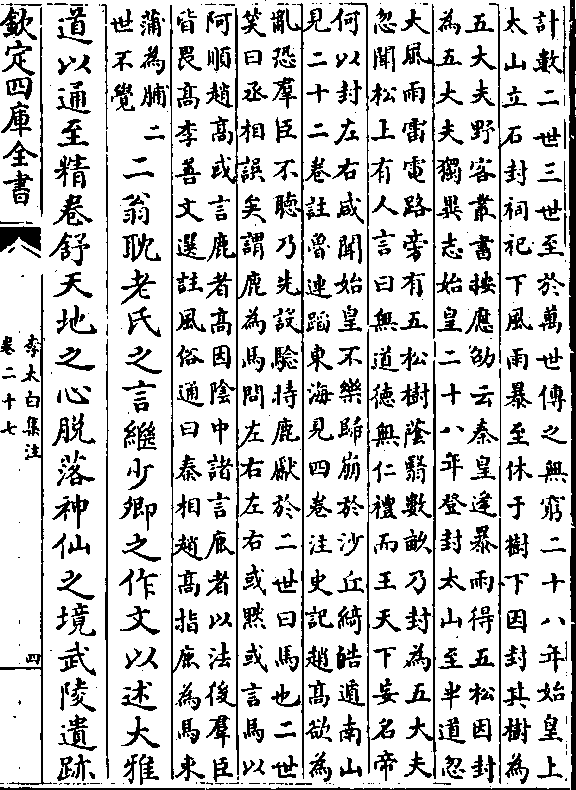 計數二世三世至於萬世傳之無窮二十八年始皇上
太山立石封祠祀下風雨暴至休于樹下因封其樹為
五大夫野客叢書按應劭云秦皇逢暴雨得五松因封
為五大夫獨異志始皇二十八年登封太山至半道忽
大風雨雷電路旁有五松樹蔭翳數畝乃封為五大夫
忽聞松上有人言曰無道德無仁禮而王天下妄名帝
何以封左右咸聞始皇不樂歸崩於沙丘綺皓遁南山
見二十二卷註魯連蹈東海見四卷注史記趙高欲為
亂恐羣臣不聽乃先設驗持鹿獻於二世曰馬也二世
笑曰丞相誤矣謂鹿為馬問左右左右或黙或言馬以
阿順趙高或言鹿者高因陰中諸言鹿者以法後羣臣
皆畏高李善文選註風俗通曰秦相趙高指鹿為馬束
蒲為脯二
世不覺
二翁耽老氏之言繼少卿之作文以述大雅
道以通至精卷舒天地之心脫落神仙之境武陵遺跡
欽定四庫全書
李太白集注
卷二十七
四